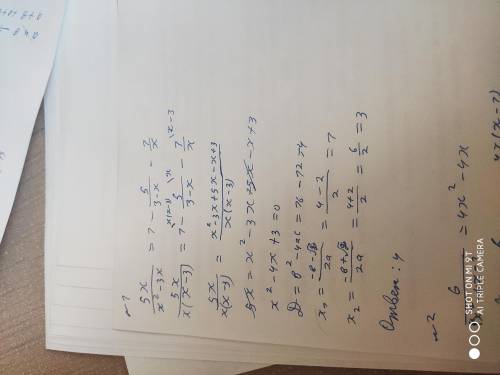 ~1
5x/(x²-3x) = 1 - 5/(3-x) - 1/x
5x/(x(x-3)) = 1 - 5/(3-x) - 1/x
5x/(x(x-3)) = (x²-3x+5x-x+3)/(x(x-3))
5x = x²-3x+5x-x+3
x²-4x+3=0
D = b²-4ac = 16-12=4
x₁ = (-b-√D)/2a = (4-2)/2 = 1
x₂ = (-b+√D)/2a = (4+2)/2 = 6/2 = 3
Ответ: 4
~2
= 4x²-4x
SHOT ON MI 9T
AI TRIPLE CAMERA